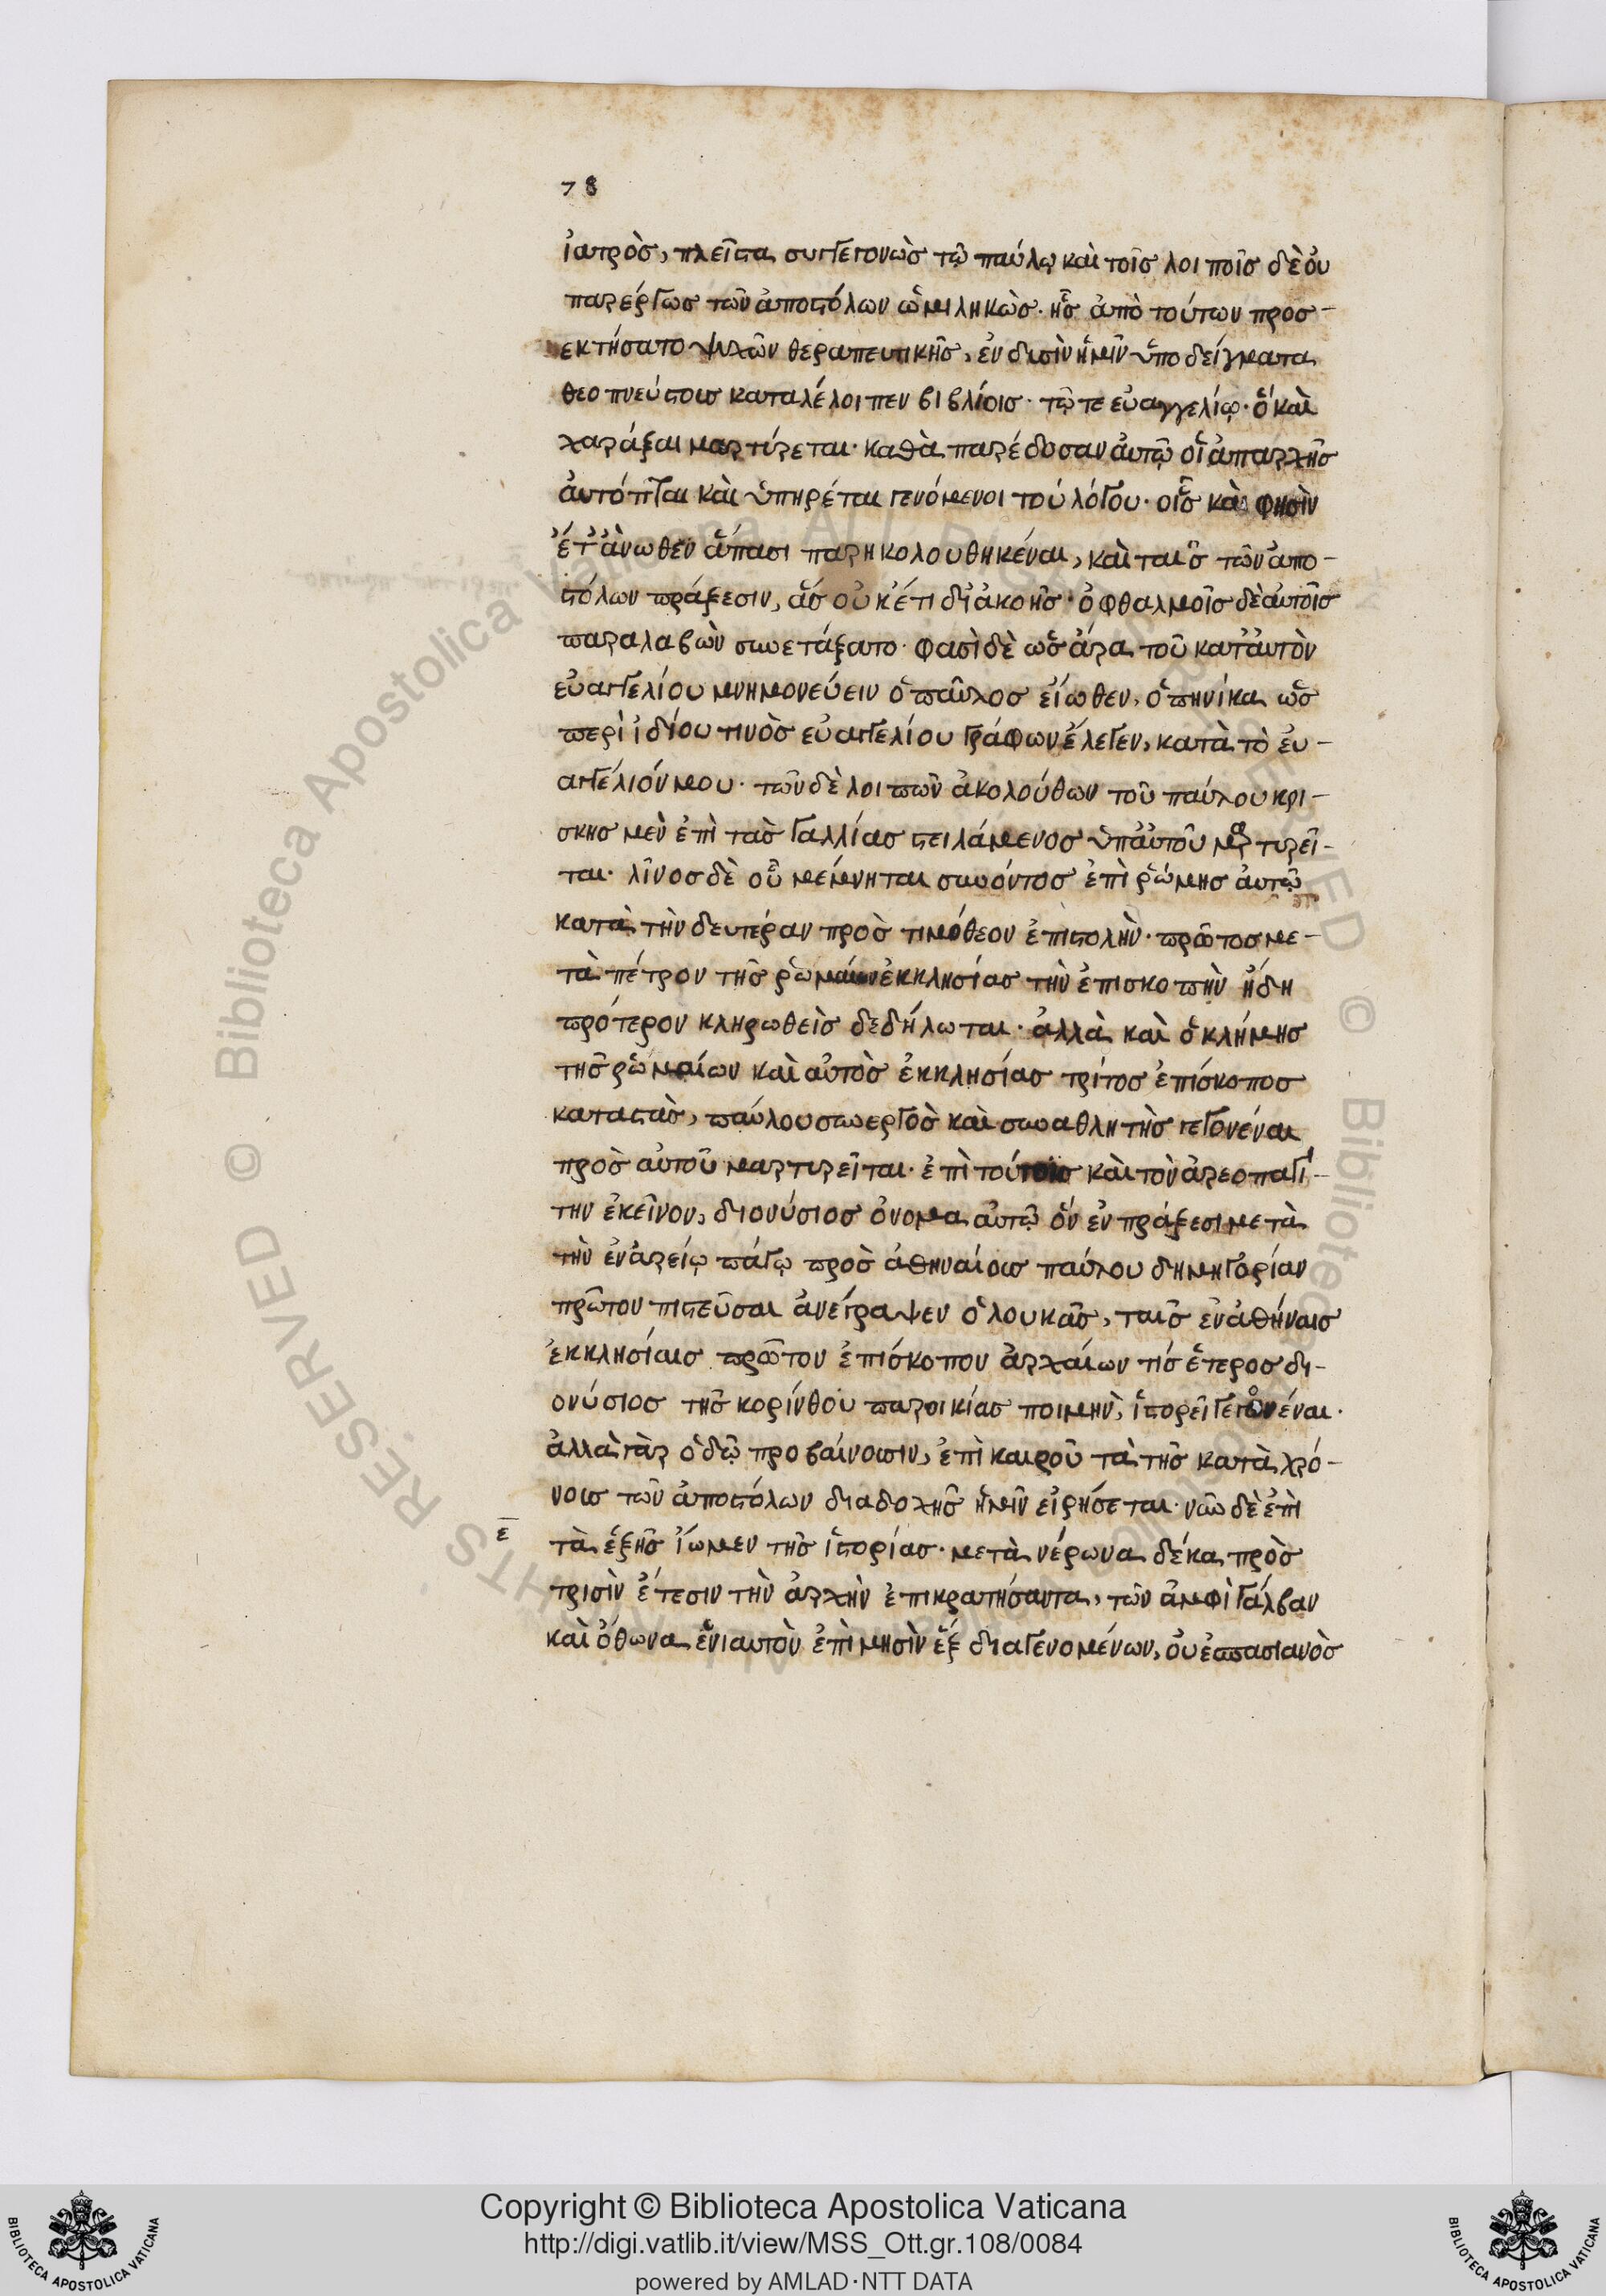 78
ἰατρὸσ, πλεῖστα συγγεγονὼσ τῷ παύλῳ καὶ τοῖσ λοιποῖσ δὲ οὐ
παρέργωσ τῶν ἀποστόλων ὡμιληκὼσ· ἧσ ἀπὸ τούτων προσ-
εκτήσατο ψυχῶν θεραπευτικῆσ, ἐν δυσὶν ἡμῖν ὑποδείγματα
θεοπνεύστοισ καταλέλοιπεν βιβλίοισ· τῷ τε εὐαγγελίῳ· ὃ καὶ
χαράξαι μαρτύρεται· καθὰ παρέδοσαν αὐτῷ οἱ ἀπαρχῆσ
αὐτόπται καὶ ὑπηρέται γενόμενοι τοῦ λόγου· οἷσ καὶ φησὶν
ἔτ' ἄνωθεν ἅπασι παρηκολουθηκέναι, καὶ ταῖσ τῶν ἀπο-
στόλων πράξεσιν, ἃσ οὐκέτι δι' ἀκοῆσ· ὀφθαλμοῖσ δὲ αὐτοῖσ
παραλαβὼν συνετάξατο· φασὶ δὲ ὡσ ἄρα τοῦ κατ' αὐτὸν
εὐαγγελίου μνημονεύειν ὁ παῦλοσ εἴωθεν, ὁπηνίκα ὡσ
περὶ ἰδίου τινὸσ εὐαγγελίου γράφων ἔλεγεν, κατὰ τὸ εὐ-
αγγέλιόν μου· τῶν δὲ λοιπῶν ἀκολούθων τοῦ παύλου κρί-
σκησ μὲν ἐπὶ τὰσ γαλλίασ στειλάμενοσ ὑπ' αὐτοῦ μαρτυρεῖ-
ται· λῖνοσ δὲ οὗ μέμνηται συνόντοσ ἐπὶ ῥώμησ αὐτῷ
κατὰ τὴν δευτέραν πρὸσ τιμόθεον ἐπιστολὴν· πρῶτοσ με-
τὰ πέτρον τῆσ ῥωμαίων ἐκκλησίασ τὴν ἐπισκοπὴν ἤδη
πρότερον κληρωθεὶσ δεδήλωται· ἀλλὰ καὶ ὁ κλήμησ
τῆσ ῥωμαίων καὶ αὐτὸσ ἐκκλησίασ τρίτοσ ἐπίσκοποσ
καταστὰσ, παύλου συνεργὸσ καὶ συναθλητὴσ γεγονέναι
πρὸσ αὐτοῦ μαρτυρεῖται· ἐπὶ τούτοισ καὶ τὸν ἀρεοπαγί-
την ἐκεῖνον, διονύσιοσ ὄνομα αὐτῷ ὃν ἐν πράξεσι μετὰ
τὴν ἐν ἀρείῳ πάγῳ πρὸσ ἀθηναίουσ παύλου δημηγορίαν
πρῶτον πιστεῦσαι ἀνέγραψεν ὁ λουκᾶσ, ταῖσ ἐν ἀθήναισ
ἐκκλησίαισ πρῶτον ἐπίσκοπον ἀρχαίων τίσ ἕτεροσ δι-
ονύσιοσ τῆσ κορίνθου παροικίασ ποιμὴν, ἱστορεῖ γεγονέναι·
ἀλλὰ γὰρ ὁδῷ προβαίνουσιν, ἐπὶ καιροῦ τὰ τῆσ κατὰ χρό-
νουσ τῶν ἀποστόλων διαδοχῆσ ἡμῖν εἰρήσεται· νῦν δὲ ἐπὶ
ε τὰ ἑξῆσ ἴωμεν τῆσ ἱστορίασ· μετὰ νέρωνα δέκα πρὸσ
τρισὶν ἔτεσιν τὴν ἀρχὴν ἐπικρατήσαντα, τῶν ἀμφὶ γάλβαν
καὶ ὄθωνα ἐνιαυτὸν ἐπὶ μησὶν ἓξ διαγενομένων, οὐεσπασιανὸσ
Copyright © Biblioteca Apostolica Vaticana
http://digi.vatlib.it/view/MSS_Ott.gr.108/0084
powered by AMLAD·NTT DATA